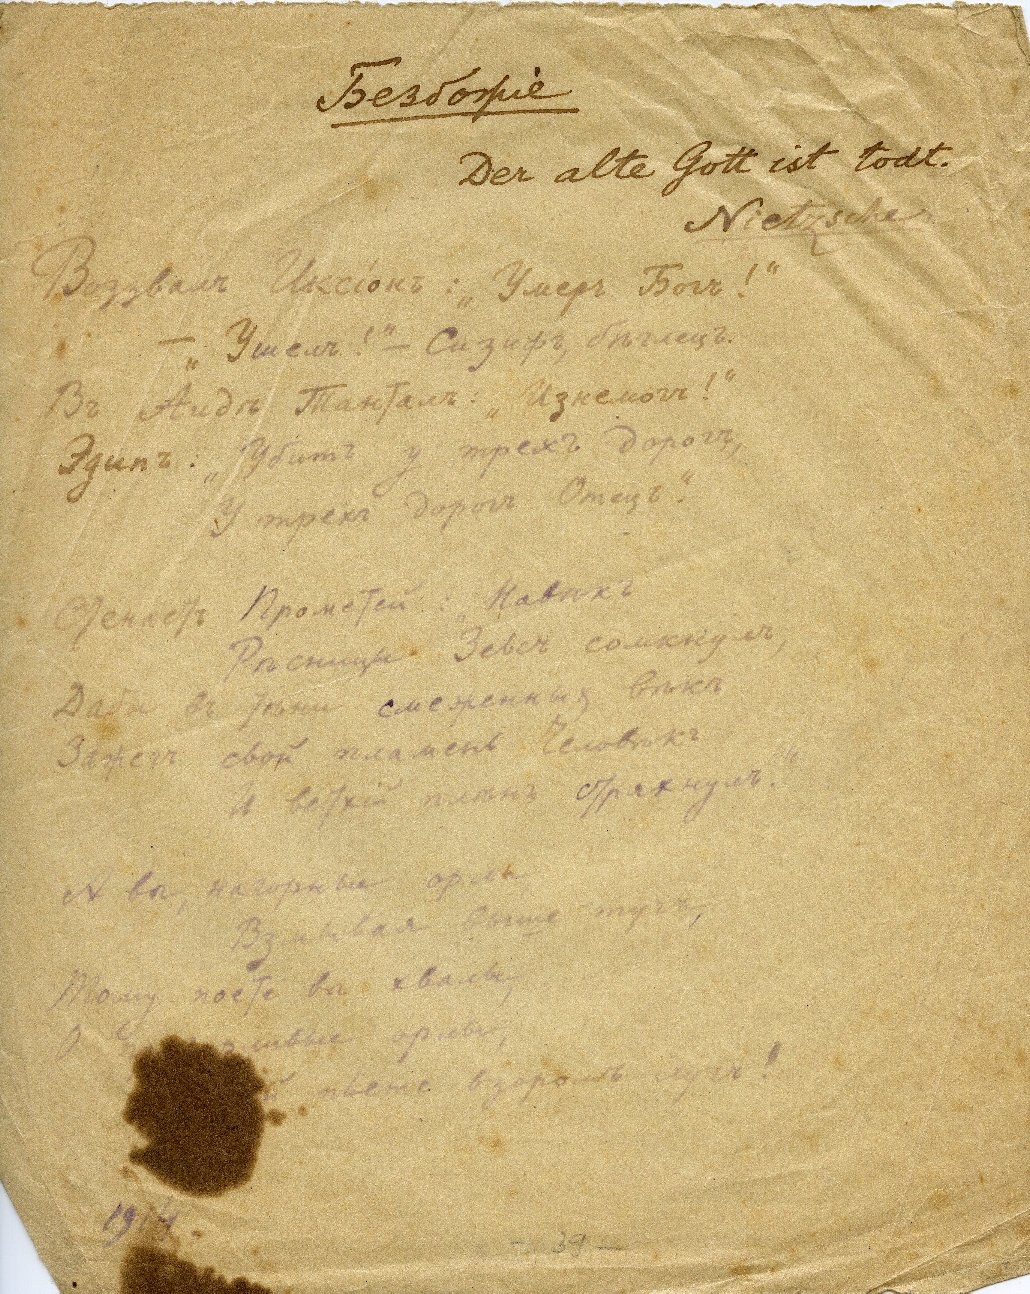 Безбожіе
Der alte Gott ist todt.
Nietzsche
Воззвалъ Иксіонъ: „Умеръ Богъ!“
— „Ушелъ!“ — Сизифъ, бѣглецъ.
Въ Аидѣ Танталъ: „Изнемогъ!“
Эдипъ: „Убитъ у трехъ дорогъ,
У трехъ дорогъ Отецъ“.
Стенетъ Прометей: „Навѣкъ
Рѣсницы Зевсъ сомкнулъ,
Дабы въ тѣни смеженныхъ вѣкъ
Зажегъ свой пламень Человѣкъ
И ветхій плѣнъ стряхнулъ.“
А вы, нагорные орлы
Взмывая выше тучъ,
Кому поете вы хвалы,
О орлы,
пьете взоромъ лучъ!
191
— 39 —